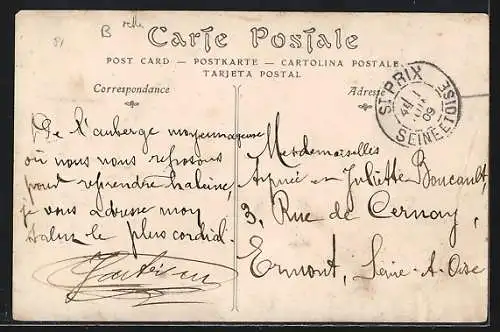 B
Carte Postale
POST CARD — POSTKARTE — CARTOLINA POSTALE
TARJETA POSTAL
Correspondance
Adresse
ST PRIX
SEINE ET OISE
09
De l'auberge moyennageuse
où nous nous reposons
pour reprendre haleine,
je vous adresse mon
salut le plus cordial.
Mesdemoiselles
et Juliette Boucault,
3, Rue de Cernay,
Ermont, Seine-&-Oise